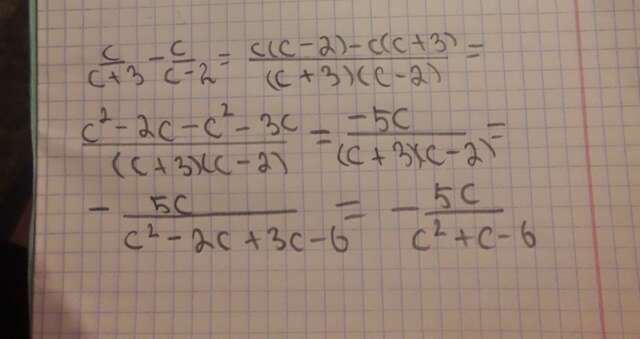 c/(c+3) - c/(c-2) = (c(c-2)-c(c+3))/((c+3)(c-2)) =
(c²-2c-c²-3c)/((c+3)(c-2)) = (-5c)/((c+3)(c-2)) =
- 5c/(c²-2c+3c-6) = - 5c/(c²+c-6)